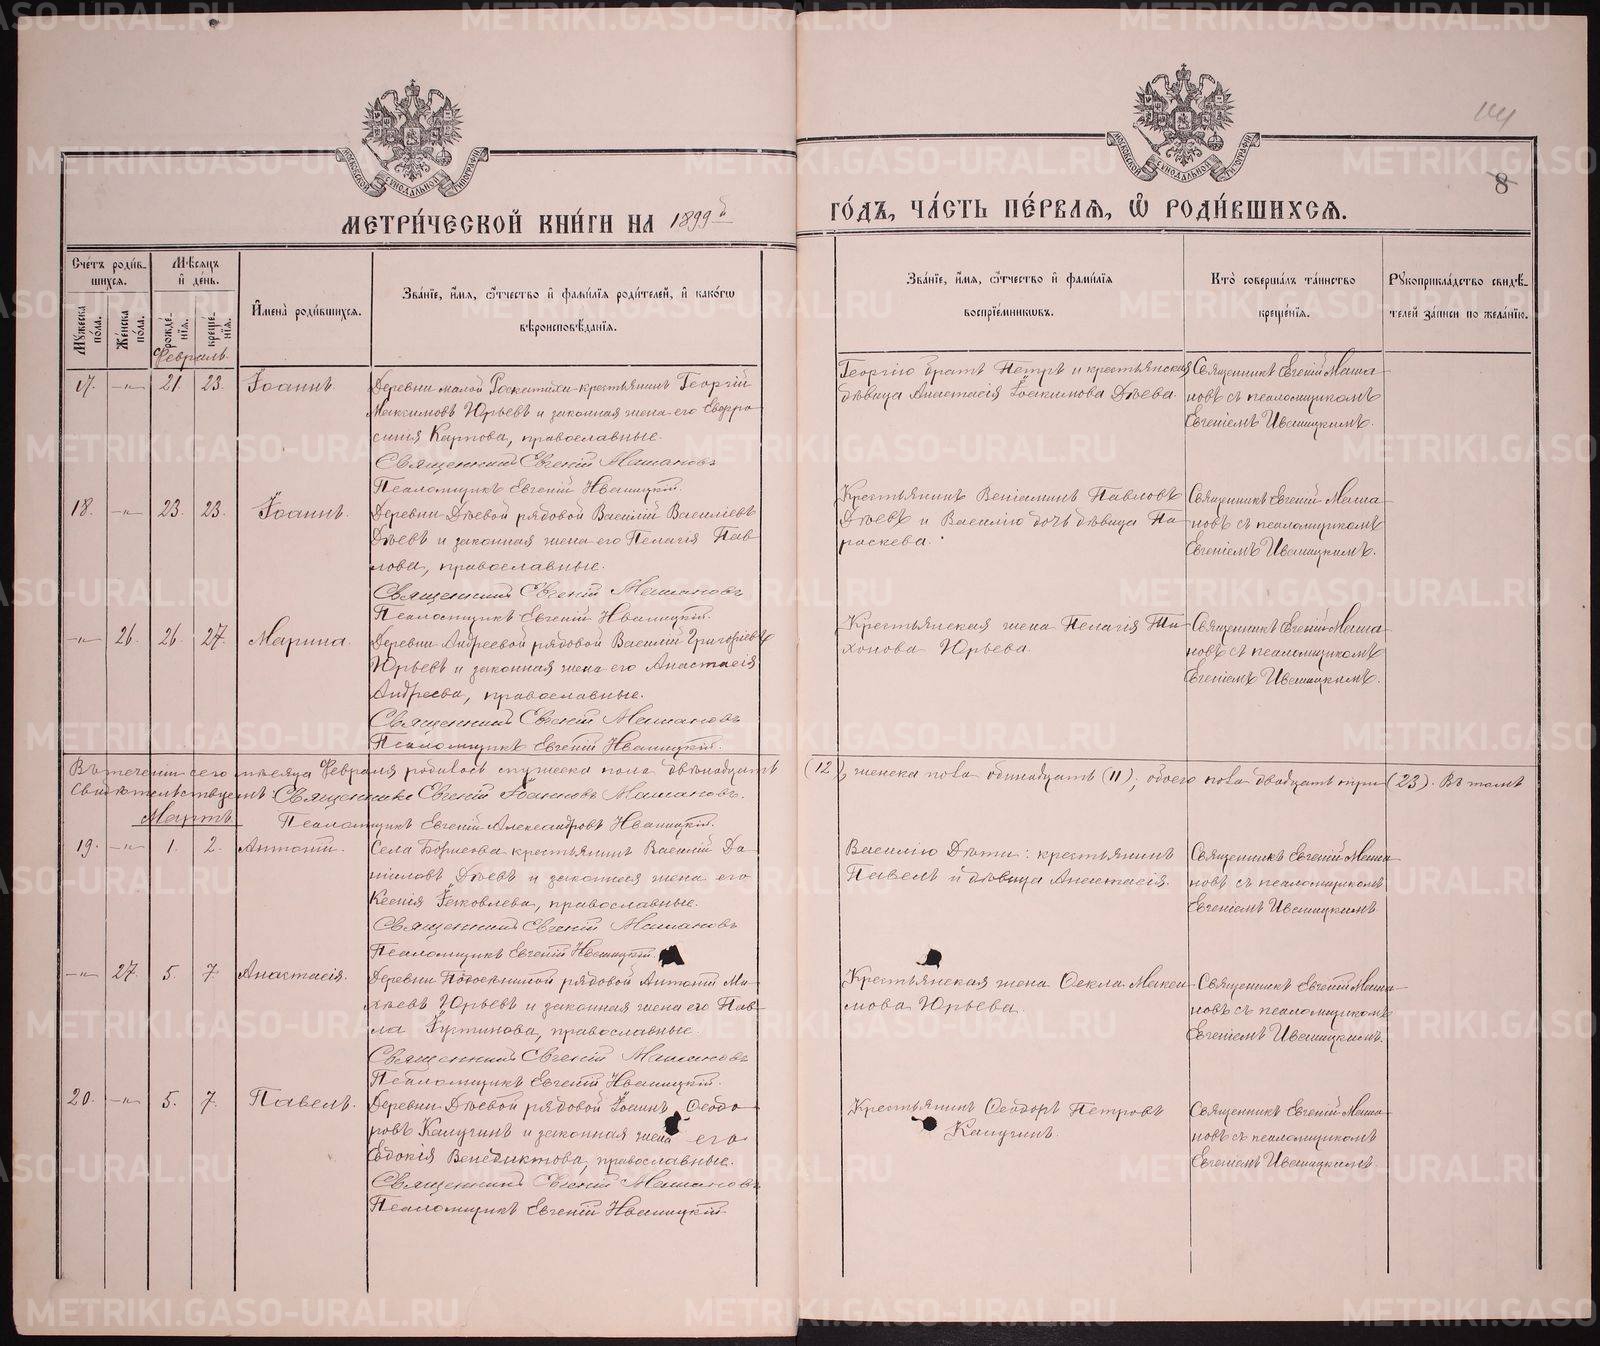 МЕТРИ́ЧЕСКОЙ КНИ́ГИ НА 1899й
ГО́ДЪ, ЧА́СТЬ ПЕ́РВАЯ, Ѽ РОДИ́ВШИХСЯ.
141
8
Сче́тъ роди́в-
шихся.
Му́жеска по́ла.
Же́нска по́ла.
Мѣ́сяцъ и де́нь.
рожде́нїя.
креще́нїя.
Имена̀ роди́вшихся.
Зва́нїе, и́мя, ѻ҆́тчество и фами́лїя роди́телей, и како́гѡ
вѣроисповѣ́данїя.
Зва́нїе, и́мя, ѻ҆́тчество и фами́лїя
воспрїе́мникѡвъ.
Кто̀ соверша́лъ та́инство
креще́нїя.
Рꙋкоприкла́дство свидѣ́-
телей за́писи по жела́нїю.
Февраль.
17. —„— 21. 23. Іоаннъ.
Деревни малой крестьянинъ Георгій
Максимовъ Юрьевъ и законная жена его Евфро-
синія Карпова, православные.
Священникъ Евгеній Машановъ
Псаломщикъ Евгеній Ивашцкій.
Георгію братъ Петръ и крестьянская
дѣвица Анастасія Іоакимова Дѣева.
Священникъ Евгеній Маша-
новъ съ псаломщикомъ
Евгеніемъ Ивашицкимъ.
18. —„— 23. 23. Іоаннъ.
Деревни Дѣевой рядовой Василій Василіевъ
Дѣевъ и законная жена его Пелагія Пав-
лова, православные.
Священникъ Евгеній Машановъ
Псаломщикъ Евгеній Ивашицкій.
Крестьянинъ Веніаминъ Павловъ
Дѣевъ и Василію дочь дѣвица Па-
раскева.
Священникъ Евгеній Маша-
новъ съ псаломщикомъ
Евгеніемъ Ивашицкимъ.
—„— 26. 26. 27. Марина.
Деревни Андреевой рядовой Василій Григоріевъ
Юрьевъ и законная жена его Анастасія
Андреева, православные.
Священникъ Евгеній Машановъ
Псаломщикъ Евгеній Ивашицкій.
Крестьянская жена Пелагія Ти-
хонова Юрьева.
Священникъ Евгеній Маша-
новъ съ псаломщикомъ
Евгеніемъ Ивашицкимъ.
Въ теченіи сего мѣсяца Февраля родилось мужеска пола двѣнадцать (12), женска пола одинадцать (11); обоего пола двадцать три (23). Въ томъ
свидѣтельствуемъ: Священникъ Евгеній Іоанновъ Машановъ.
Псаломщикъ Евгеній Александровъ Ивашицкій.
Мартъ
19. —„— 1. 2. Антоній.
Села крестьянинъ Василій Да-
ніиловъ Дѣевъ и законная жена его
Ксенія Іаковлева, православные.
Священникъ Евгеній Машановъ
Псаломщикъ Евгеній Ивашицкій.
Василію дѣти: крестьянинъ
Павелъ и дѣвица Анастасія.
Священникъ Евгеній Маша-
новъ съ псаломщикомъ
Евгеніемъ Ивашицкимъ.
—„— 27. 5. 7. Анастасія.
Деревни рядовой Антоній Ми-
хѣевъ Юрьевъ и законная жена его Пав-
ла Іустинова, православные.
Священникъ Евгеній Машановъ
Псаломщикъ Евгеній Ивашицкій.
Крестьянская жена Ѳекла Макси-
мова Юрьева.
Священникъ Евгеній Маша-
новъ съ псаломщикомъ
Евгеніемъ Ивашицкимъ.
20. —„— 5. 7. Павелъ.
Деревни Дѣевой рядовой Іоаннъ Ѳеодо-
ровъ Калугинъ и законная жена его
Евдокія Венедиктова, православные.
Священникъ Евгеній Машановъ
Псаломщикъ Евгеній Ивашицкій.
Крестьянинъ Ѳеодоръ Петровъ
Калугинъ.
Священникъ Евгеній Маша-
новъ съ псаломщикомъ
Евгеніемъ Ивашицкимъ.
METRIKI.GASO-URAL.RU